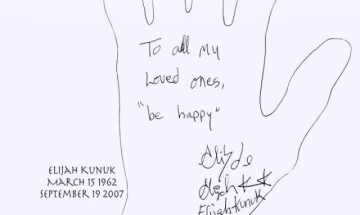 To all my
Loved ones,
"be happy"
Elijah Kunuk
ELIJAH KUNUK
MARCH 15 1962
SEPTEMBER 19 2007